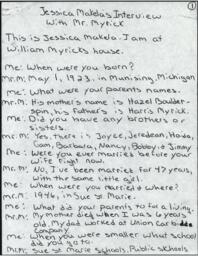 ①
Jessica Makelas Interview
With Mr. Myrick
This is Jessica Makela. I am at
William Myricks house.
Me: When were you born?
Mr.M: May 1, 1923, in Munising, Michigan
Me: What were your parents names.
Mr.M: His mothers name is Hazel Baulder-
spoin, his Fathers is Harris Myrick.
Me: Did you have any brothers or
sisters.
Mr.M: Yes, There is Joyce, Jeredean,
Cam, Barbara, Nancy, Bobby & Jimmy
Me: Were you ever married before your
wife right now.
Mr.M: No, I've been married for 47 years,
with the same little girl.
Me: When were you married & where?
Mr.M: 1946, in Sue St. Marie.
Me: What did you parents to for a living.
Mr.M: My mother died when I was 6 years
old. My dad worked at Union Carbide
Company.
Me: When you were smaller what school
did you go to.
Mr.M: Sue St Marie schools, Public schools